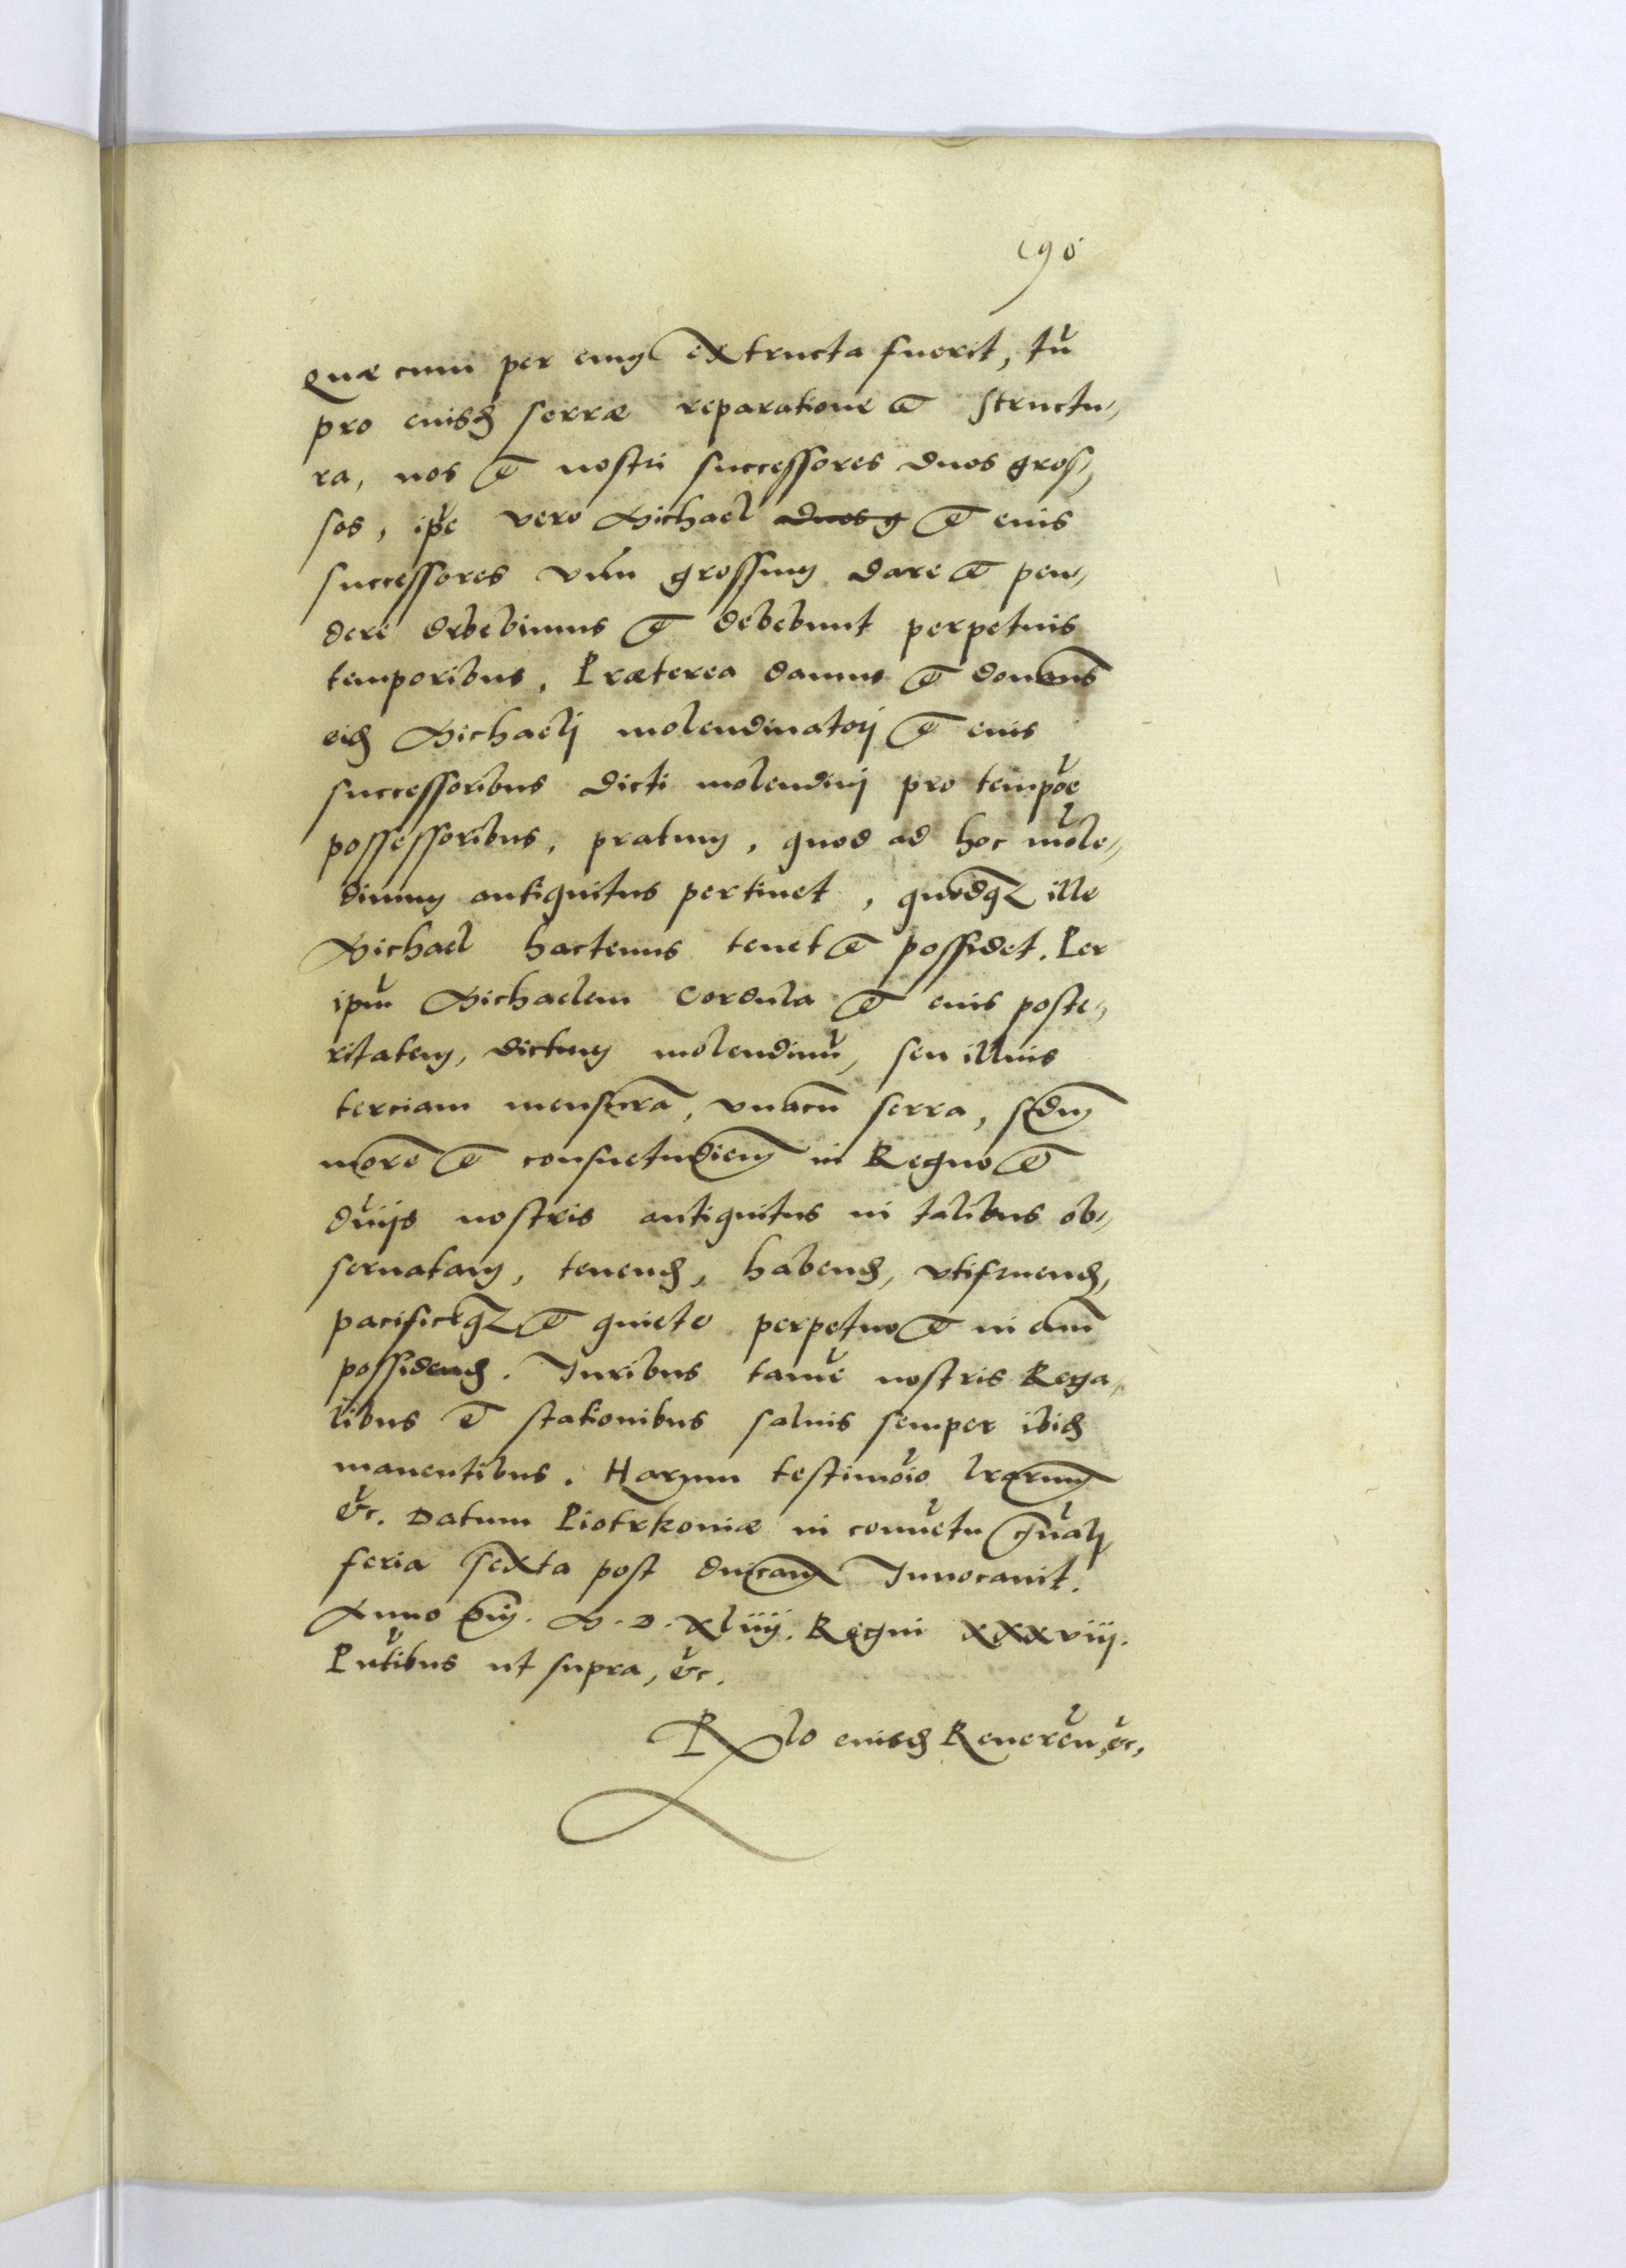 190
quæ cum per eum extructa fuerit, tũ
pro euisd serræ reparatione et structu„
ra, nos et nostri successores duos gros„
sos, ip̃e vero Michael duos g et euis
successores vnũ grossum dare et pen„
dere debebimus et debebunt perpetuis
temporibus. Præterea damus et donam̃s
eid Michaelj molendinatorj et euis
successoribus dicti molendinj pro tempõe
possessoribus, pratum, quod ad hoc mõle„
dinum antiquitus pertinet, quodq ille
Michael hactenus tenet et possidet. Per
ip̃m Michaelem Cordula et euis poste„
ritatem, dictum molendinũ, seu illius
terciam mensurã, vnacũ serra, scd̃m
morẽ et consuetudiem̃ in Regno et
dñijs nostris antiquitus in talibus ob„
seruatam, tenend, habend, vtifruend,
pacificeq et quiete perpetuo et in æuũ
possidend. Juribus tamẽ nostris Rega„
libus et stationibus saluis semper ibid
manentibus. Harum testimoĩo lr̃arum
&c. Datum Piotrkouiæ in conuẽtu gñalj
feria sexta post dñicam Inuocauit.
Anno Dñi. M. D. xliiij. Regni xxxviij.
Pñtibus ut supra, &c.
Rlo euisd Reuerẽn, &c,